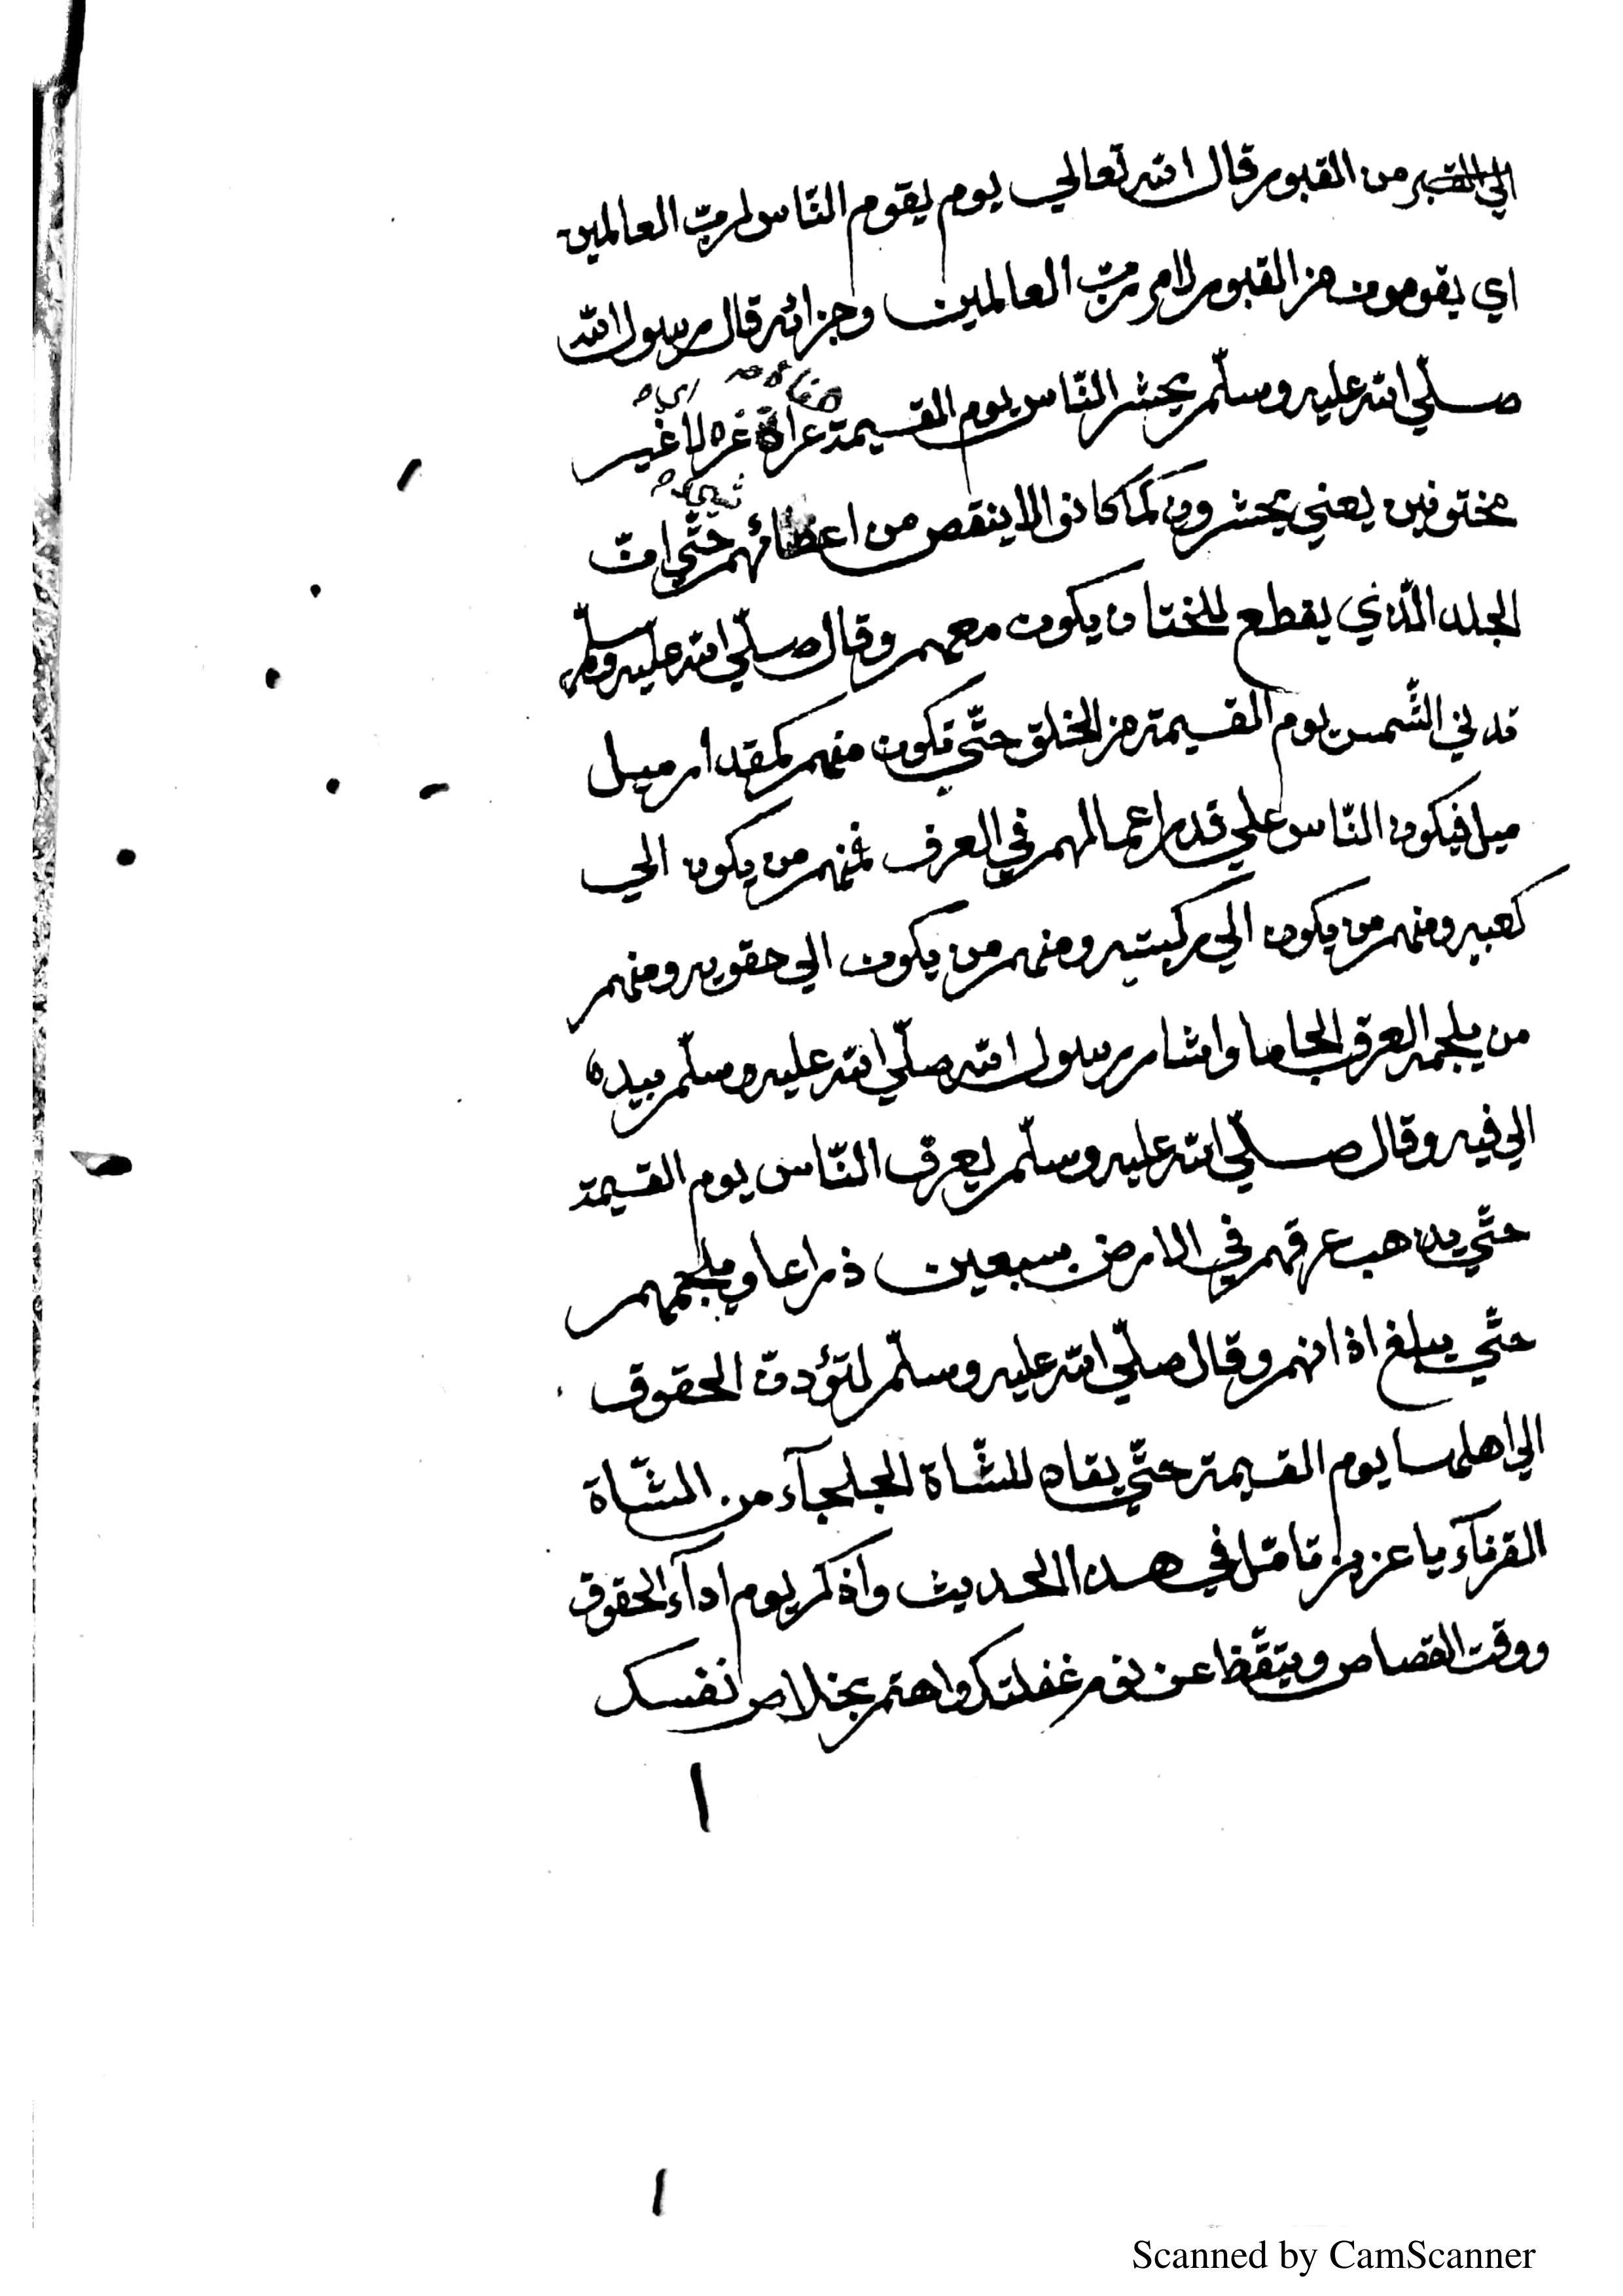 من القبور قال الله تعالي يوم يقوم النّاس لربّ العالمين
اي يقومون من القبور لامر ربّ العالمين وجزائه قال رسول الله
صلّي الله عليه وسلّم يحشر النّاس يوم القيمة عراة غرلا غير
مختونين يعني يحشرون كما كانوا لا ينقص من اعضائهم حتّي انّ
الجلد الّذي يقطع للختان يكون معهم وقال صلّي الله عليه وسلّم
تدني الشّمس يوم القيمة من الخلق حتّي تكون منهم كمقدار ميل
ميل فيكون النّاس علي قدر اعمالهم في العرق فمنهم من يكون الي
كعبيه ومنهم من يكون الي ركبتيه ومنهم من يكون الي حقويه ومنهم
من يلجمه العرق الجاما واشار رسول الله صلّي الله عليه وسلّم بيده
الي فيه وقال صلّي الله عليه وسلّم يعرق النّاس يوم القيمة
حتّي يذهب عرقهم في الارض سبعين ذراعا ويلجمهم
حتّي يبلغ اذانهم وقال صلّي الله عليه وسلّم لتؤدّن الحقوق
الي اهلها يوم القيمة حتّي يقاد للشّاة الجلجآء من الشّاة
القرنآء يا عزيز تامّل في هذا الحديث واذكر يوم ادآء الحقوق
ووقت القصاص ويتقّظ عن نوم غفلتك واهتم بخلاص نفسك
Scanned by CamScanner